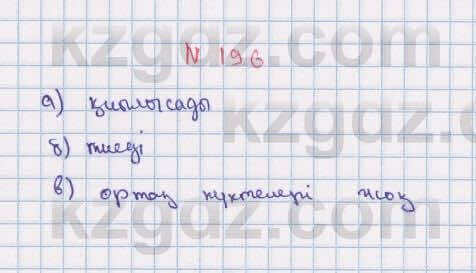 kzgdz.com
N 196
а) қиылысады
kzgdz.com
б) тиеді
в) ортақ нүктелері жоқ
kzgdz.com